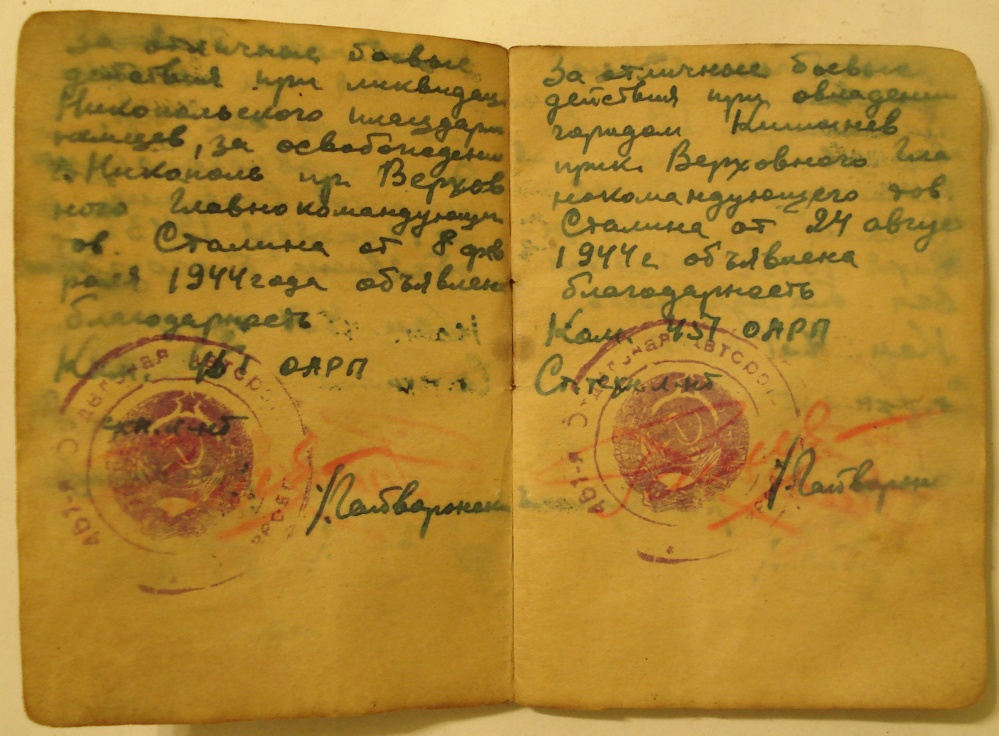 За отличные боевые
действия при ликвидаци
Никопольского плацдарм
немцев, за освобождени
г. Никополь пр. Верхов
ного Главнокомандующи
тов. Сталина от 8 фев
раля 1944 года объявлен
благодарность
Ком. 457 ОАРП
техн л-нт
За отличные боевые
действия при овладении
городом Кишинев
прик. Верховного Гла
нокомандующего тов.
Сталина от 24 авгус
1944 г. объявлена
благодарность
Ком. 457 ОАРП
Ст. техн л-нт